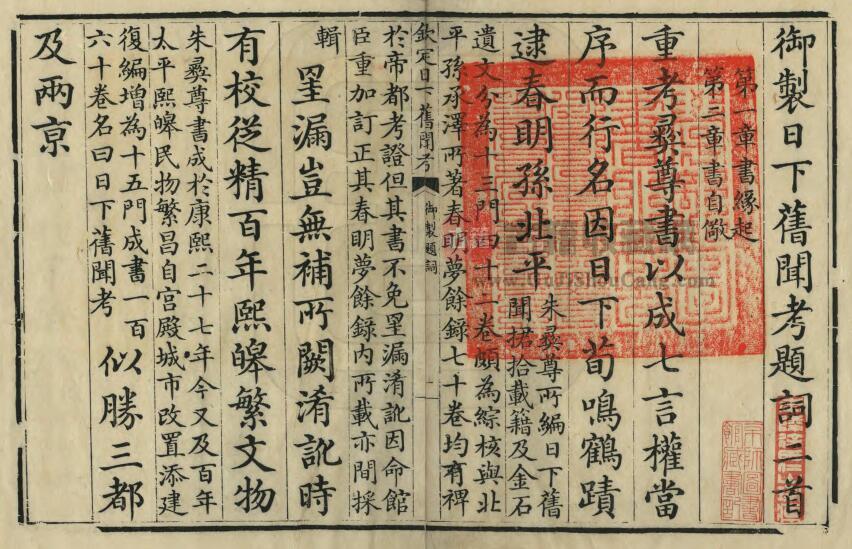 御製日下舊聞考題詞二首
第一章書緣起
第二章書自儆
重考彝尊書以成七言權當
序而行名因日下荀鳴鶴蹟
逮春明孫北平
朱彝尊所編日下舊
聞捃拾載籍及金石
遺文分為十三門四十二卷頗為綜核與北
平孫承澤所著春明夢餘錄七十卷均有裨
欽定日下舊聞考 御製題詞 一
於帝都考證但其書不免罣漏淆訛因命館
臣重加訂正其春明夢餘錄內所載亦間採
輯
罣漏豈無補所闕淆訛時
有校從精百年熙皞繁文物
朱彝尊書成於康熙二十七年今又及百年
太平熙皞民物繁昌自宫殿城市改置添建
復編增為十五門成書一百
六十卷名曰日下舊聞考
似勝三都
及兩京